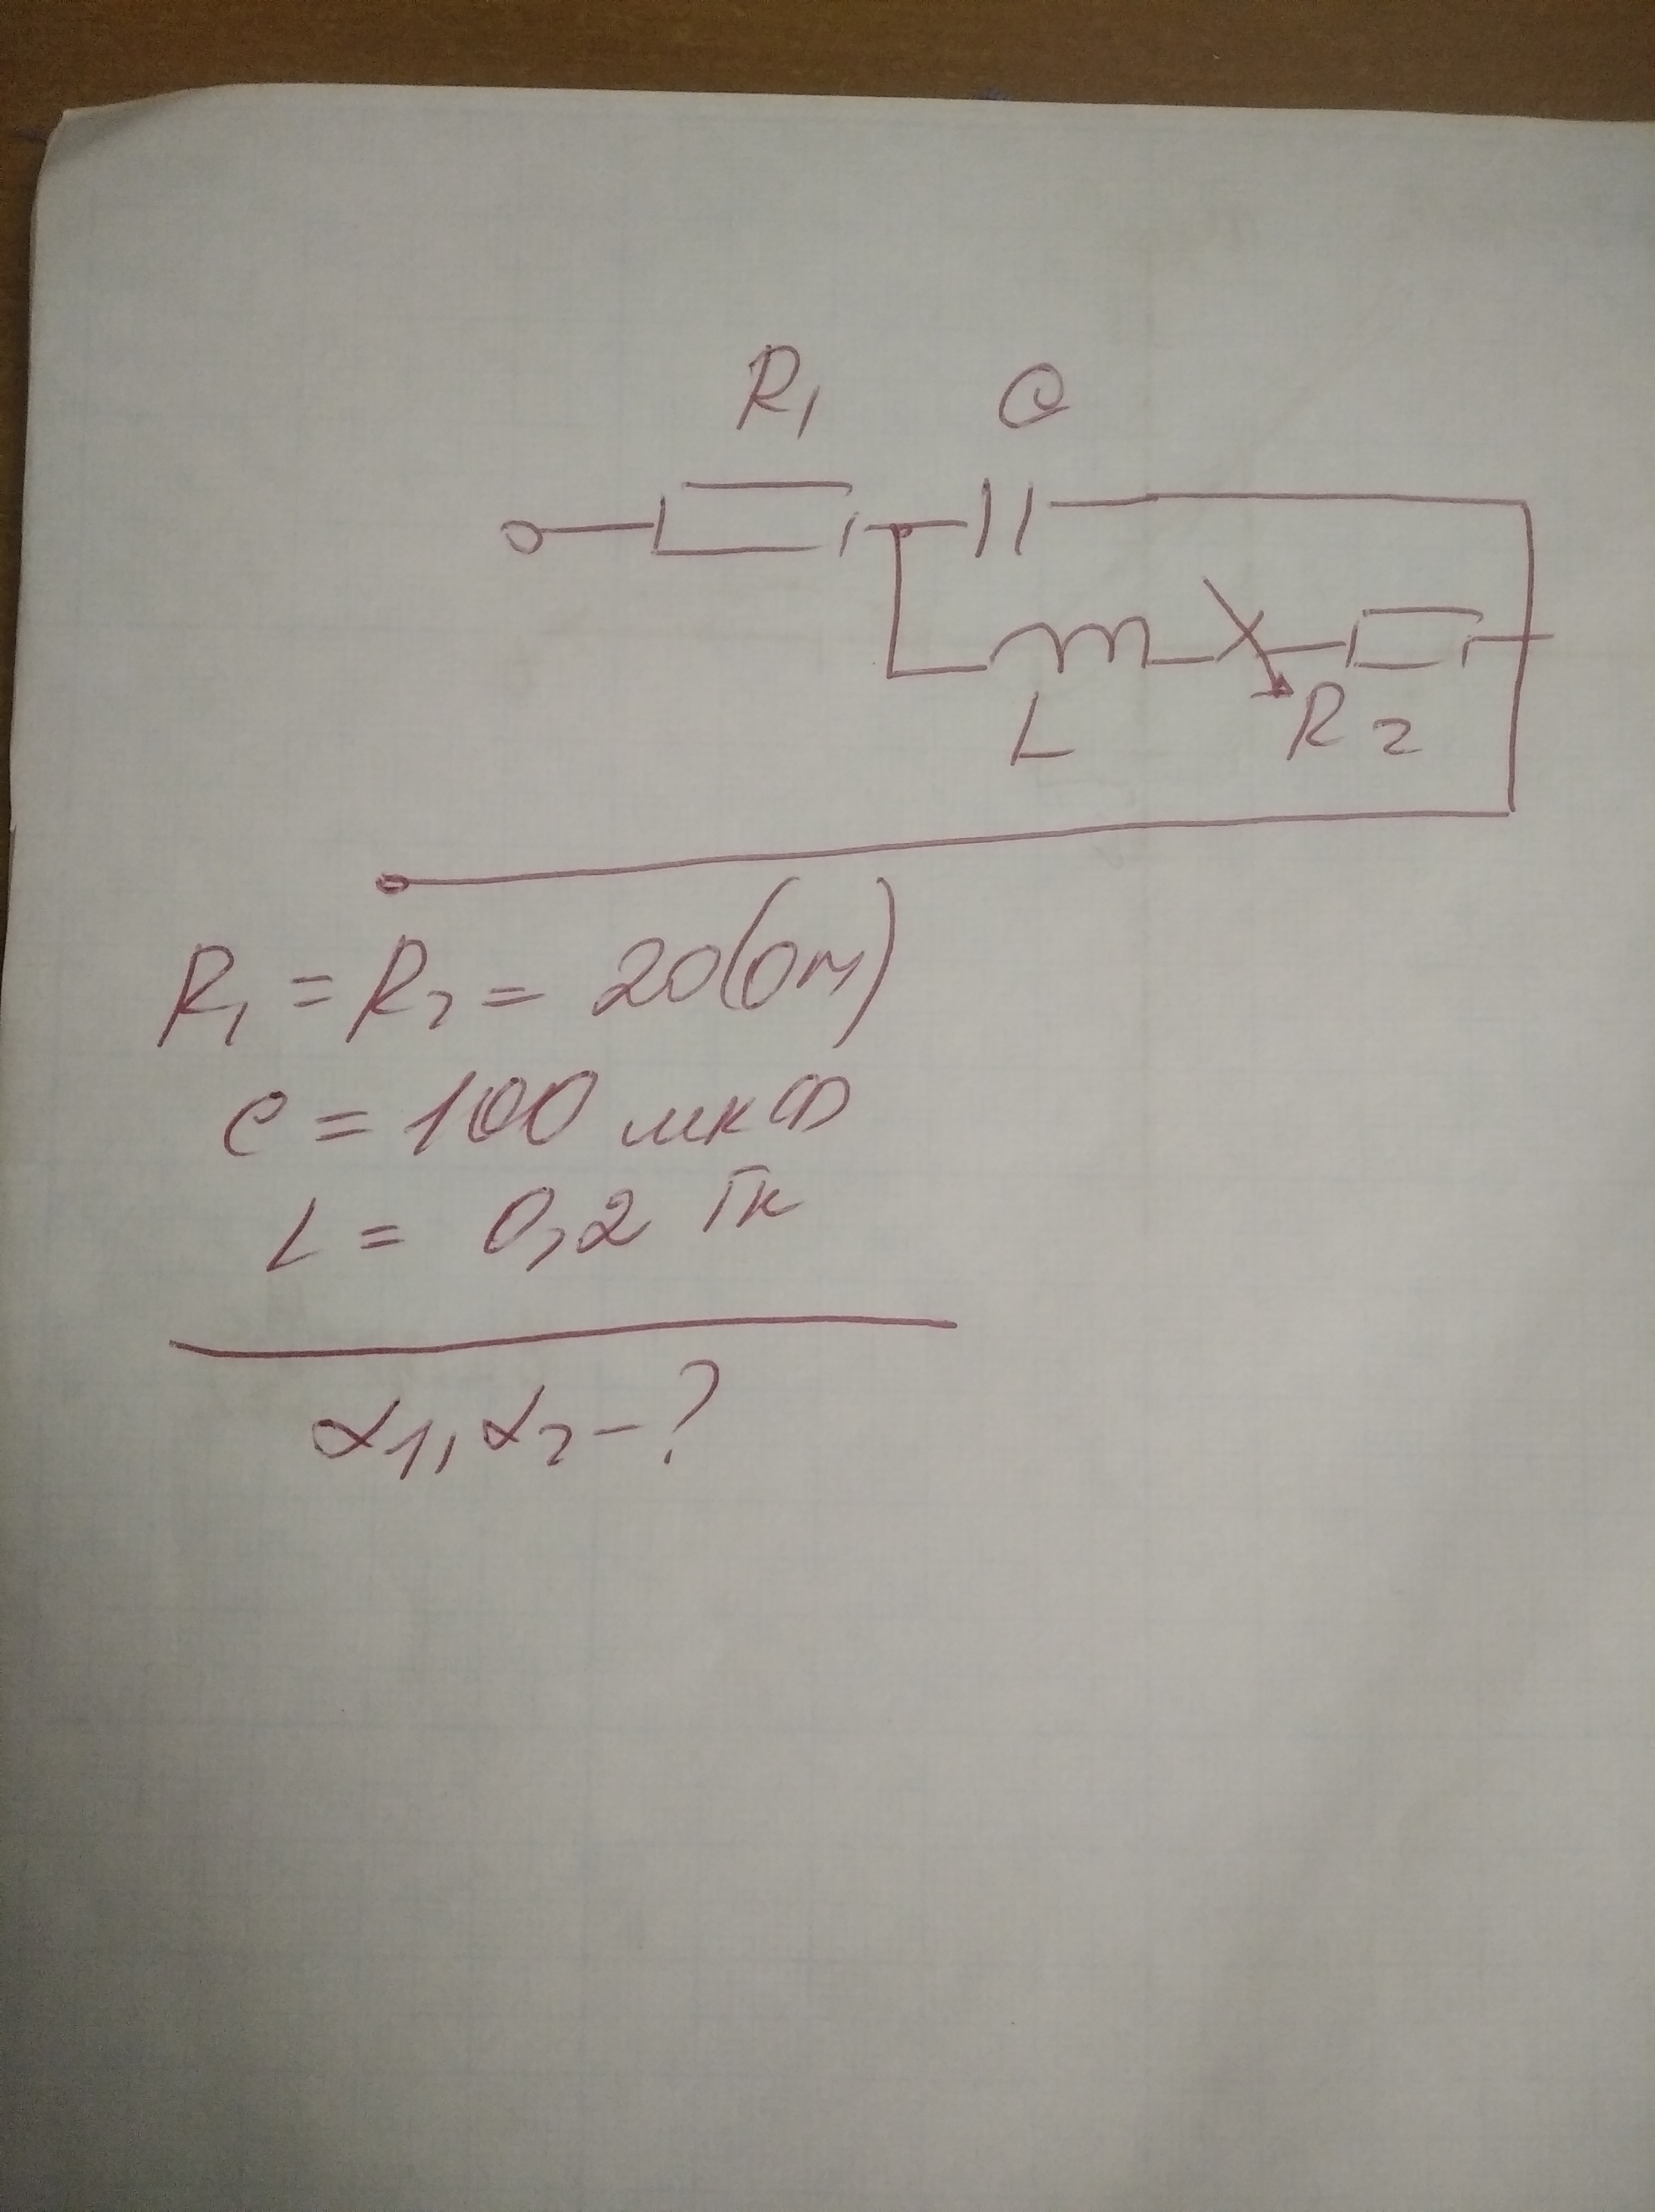 R₁ C
L R₂
R₁ = R₂ = 20(Ом)
C = 100 мкФ
L = 0,2 Гн
α₁, α₂ - ?